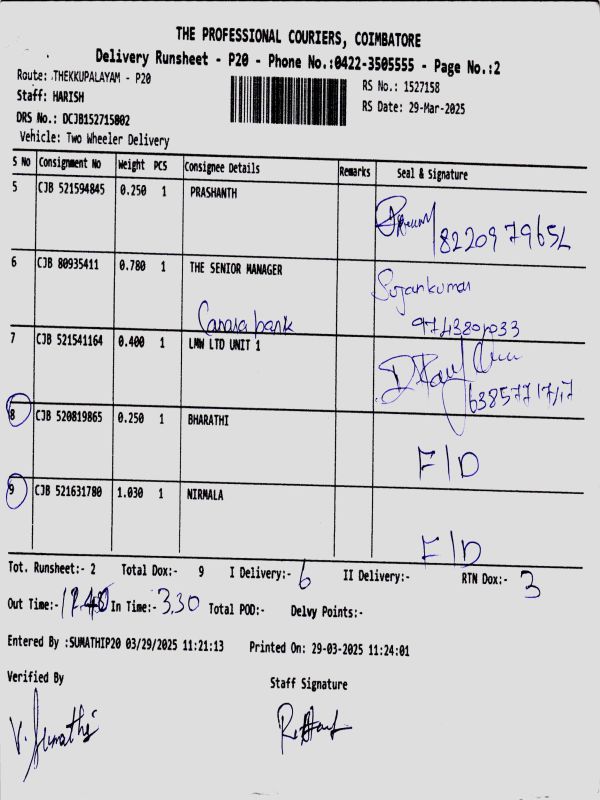 THE PROFESSIONAL COURIERS, COIMBATORE
Delivery Runsheet - P20 - Phone No.:0422-3505555 - Page No.:2
Route: THEKKUPALAYAM - P20
RS No.: 1527158
Staff: HARISH
RS Date: 29-Mar-2025
DRS No.: DCJB152715802
Vehicle: Two Wheeler Delivery
S No Consignment No Weight PCS Consignee Details Remarks Seal & Signature
5 CJB 521594845 0.250 1 PRASHANTH
6 CJB 80935411 0.780 1 THE SENIOR MANAGER Sujankumar
Canara bank
7 CJB 521541164 0.400 1 LMW LTD UNIT 1
8 CJB 520819865 0.250 1 BHARATHI F/D
9 CJB 521631780 1.030 1 NIRMALA F/D
Tot. Runsheet:- 2 Total Dox:- 9 I Delivery:- 6 II Delivery:- RTN Dox:- 3
Out Time:- In Time:- 3.30 Total POD:- Delvy Points:-
Entered By :SUMATHIP20 03/29/2025 11:21:13 Printed On: 29-03-2025 11:24:01
Verified By Staff Signature
V. Sumathi